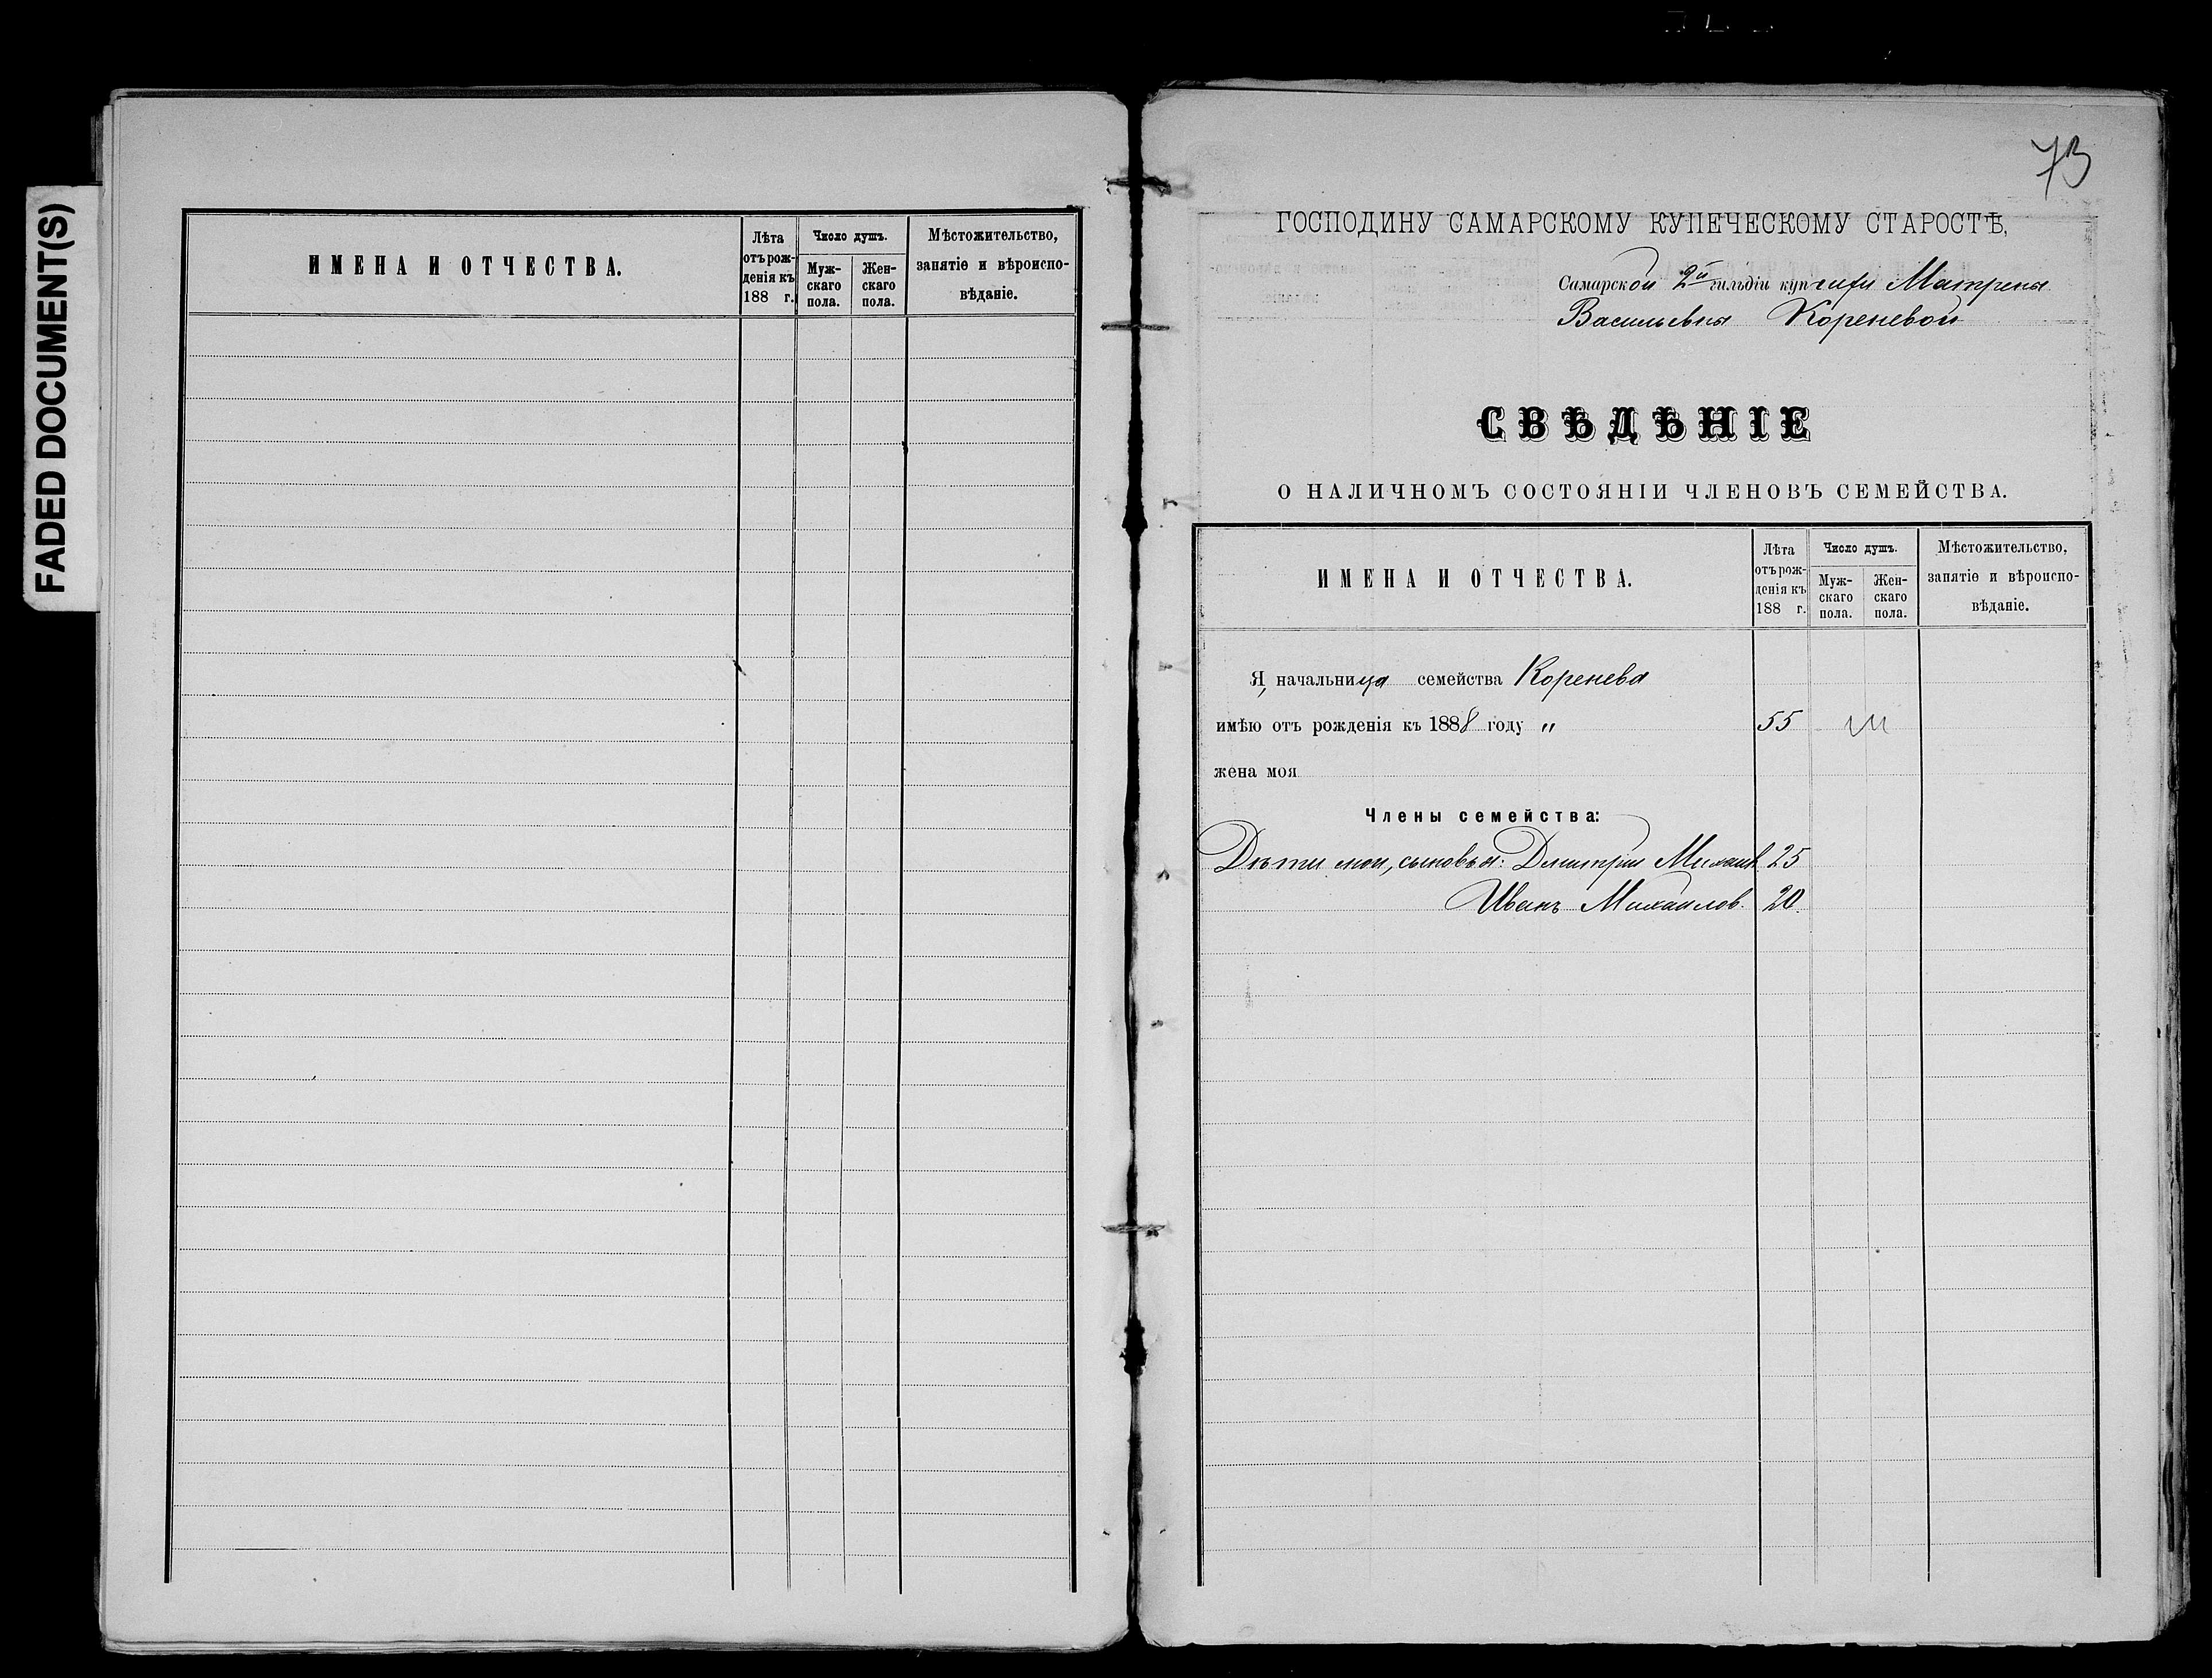 FADED DOCUMENT(S)
ИМЕНА И ОТЧЕСТВА.
Лѣта отъ рож-денія къ 188 г.
Число душъ.
Муж-скаго пола.
Жен-скаго пола.
Мѣстожительство, занятіе и вѣроиспо-вѣданіе.
73
ГОСПОДИНУ САМАРСКОМУ КУПЕЧЕСКОМУ СТАРОСТѢ,
Самарской 2й гильдіи купчихи Матрены
Васильевны Кореневой
СВѢДѢНІЕ
О НАЛИЧНОМЪ СОСТОЯНІИ ЧЛЕНОВЪ СЕМЕЙСТВА.
ИМЕНА И ОТЧЕСТВА.
Лѣта отъ рож-денія къ 188 г.
Число душъ.
Муж-скаго пола.
Жен-скаго пола.
Мѣстожительство, занятіе и вѣроиспо-вѣданіе.
Я, начальница семейства Коренева
имѣю отъ рожденія къ 1888 году " 55
жена моя
Члены семейства:
Дѣти мои, сыновья: Дмитрій 25
Иванъ Михайлов. 20.